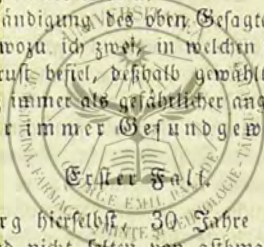 ändigung des oben Gesagte
wozu ich zwei, in welchen
rust befiel, deßhalb gewählt
immer als gefährlicher ang
r immer Gesundgew
Erster Fall.
rg hierselbst, 30 Jahre
nd nicht selten von asthma